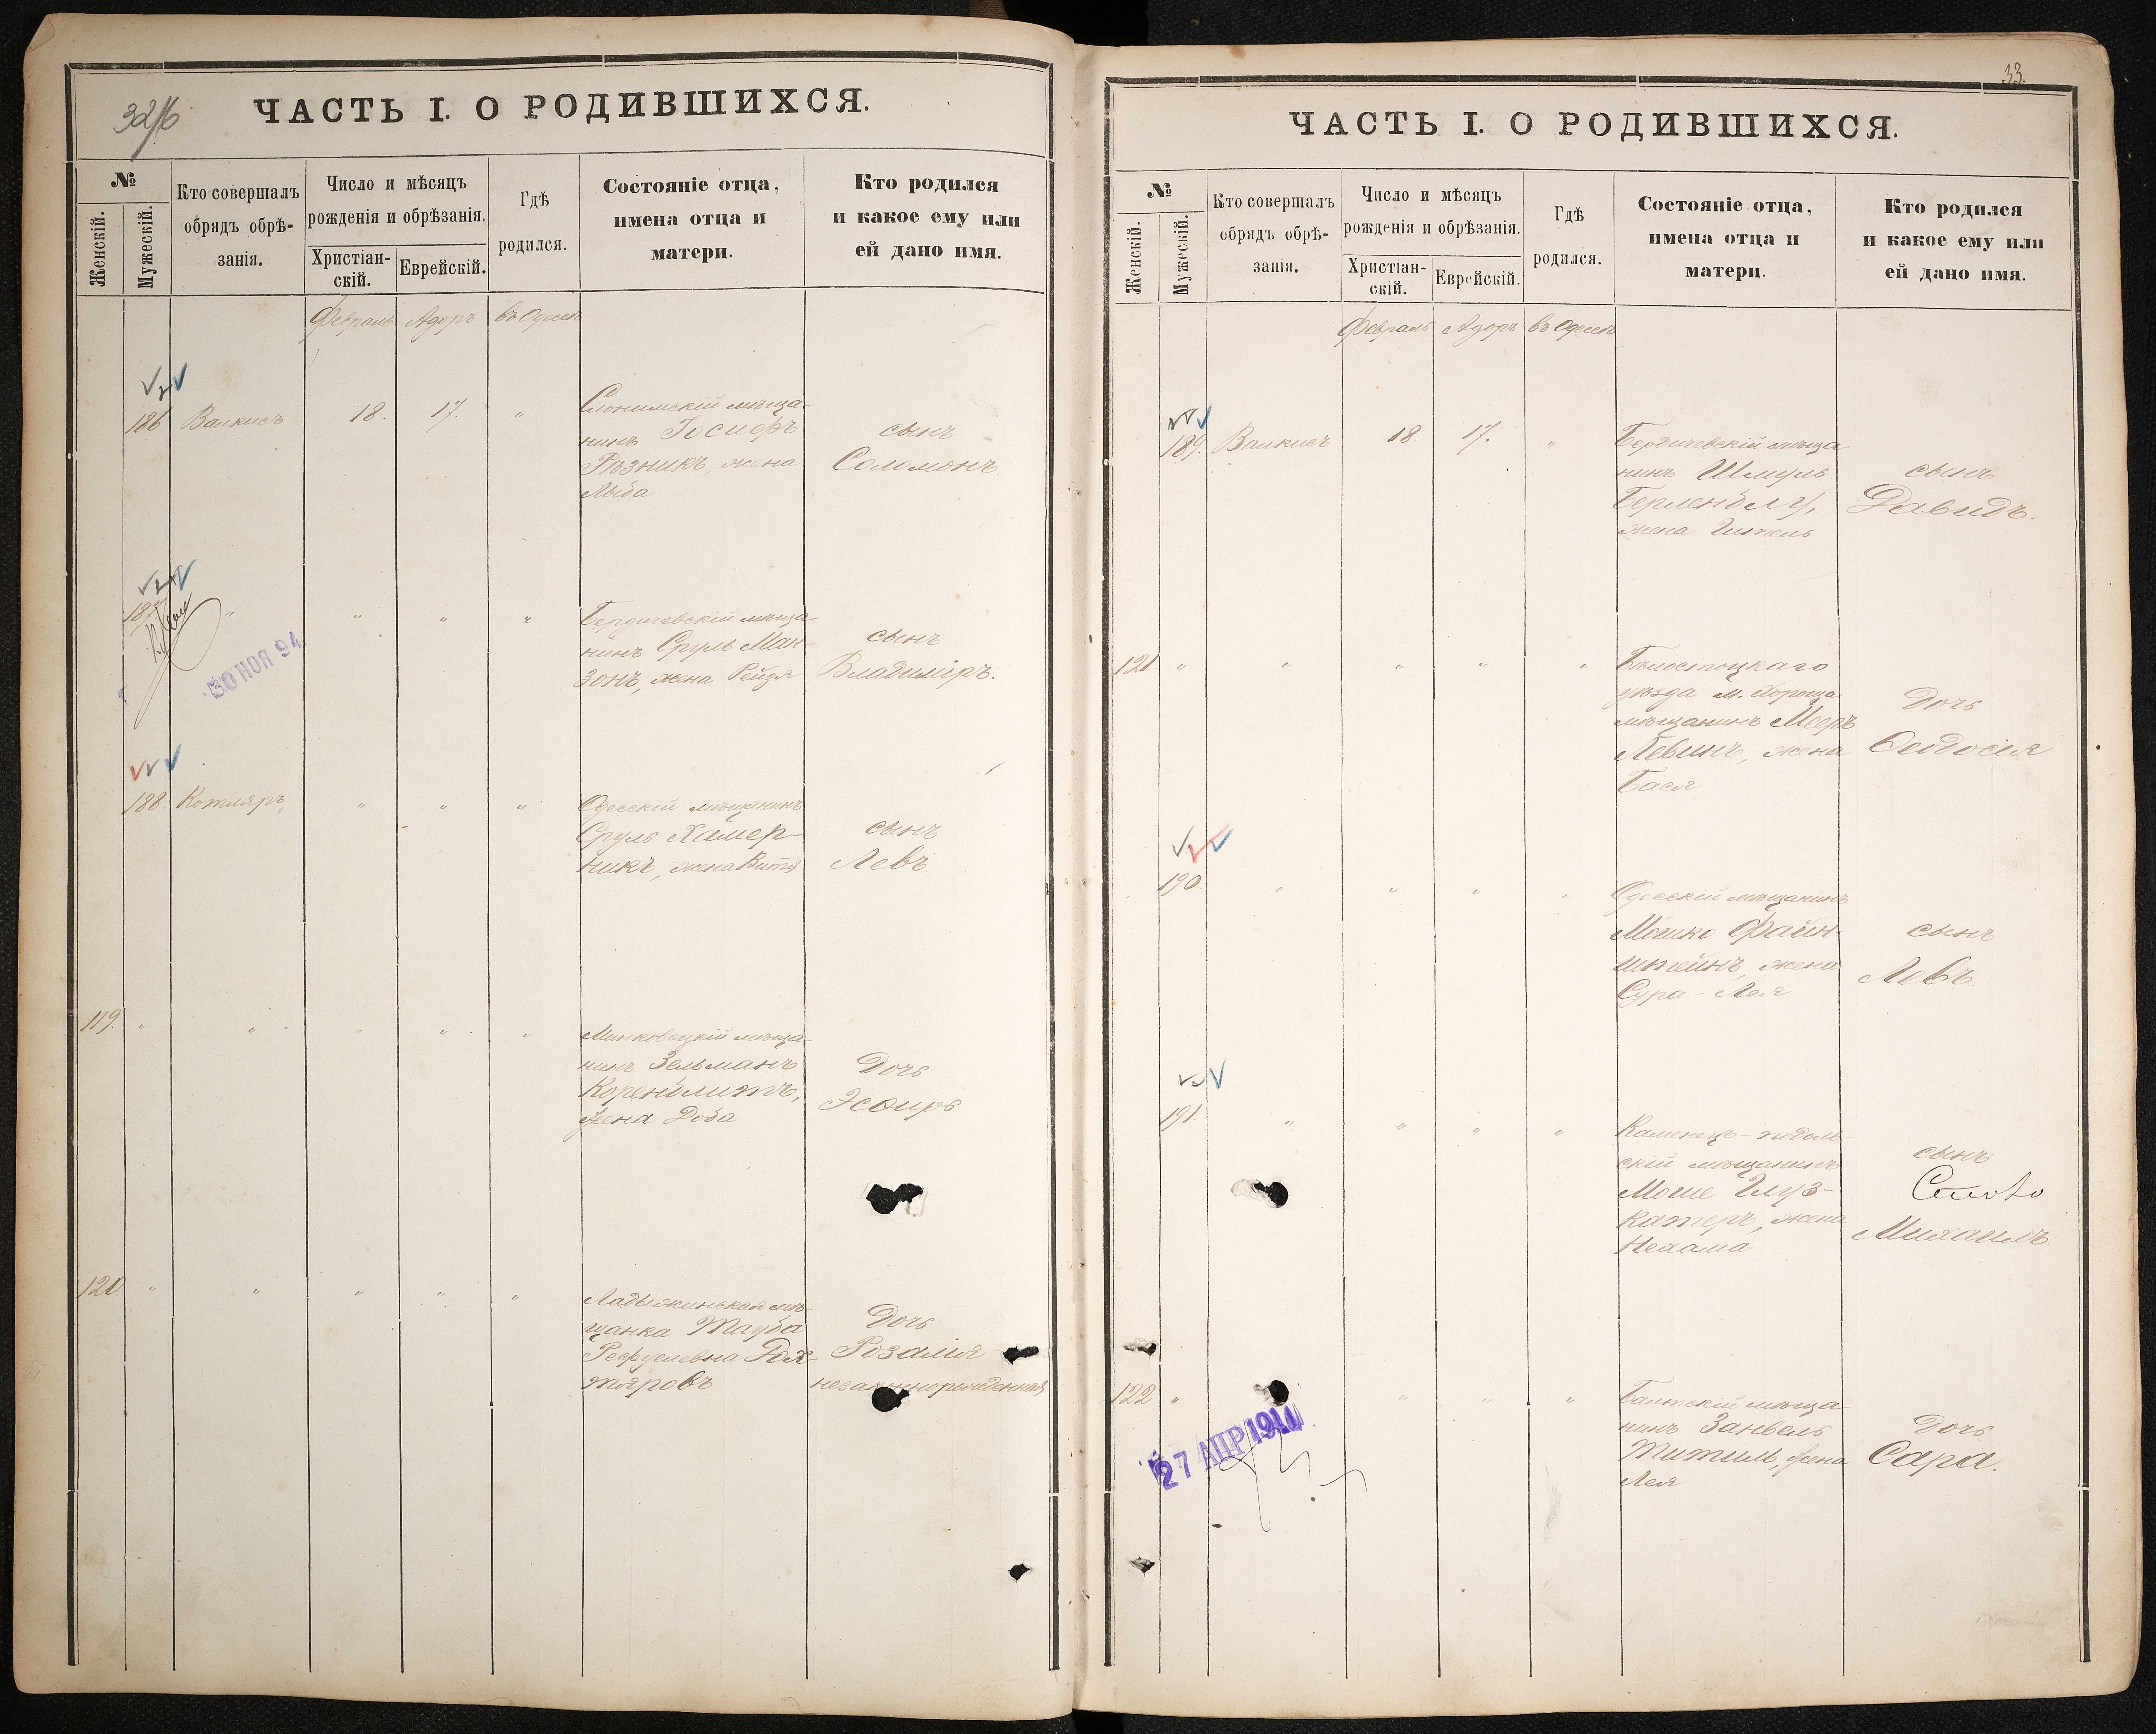 32/16
ЧАСТЬ I. О РОДИВШИХСЯ.
№
Женскій.
Мужескій.
Кто совершалъ
обрядъ обрѣ-
занія.
Число и мѣсяцъ
рожденія и обрѣзанія.
Христіан-
скій.
Еврейскій.
Гдѣ
родился.
Состояніе отца,
имена отца и
матери.
Кто родился
и какое ему или
ей дано имя.
Февраль Адоръ въ Одессѣ
186 Валкисъ 18. 17. "
Слонимскій мѣща-
нинъ Іосифъ
Рѣзникъ, жена
Либа
сынъ
Соломонъ.
187 " " " "
30 НОЯ 94
Бердичевскій мѣща-
нинъ Сруль Ман-
зонъ, жена Рейзя
сынъ
Владиміръ.
188 Котляръ " " "
Одесскій мѣщанинъ
Сруль Хамер-
никъ, жена Витя
сынъ
Левъ
119. " " " " "
Минковецкій мѣща-
нинъ Зельманъ
Коренблитъ,
жена Доба
Дочь
Эсѳирь
120. " " " " "
Ладыжинская мѣ-
щанка Тауба
жтяровъ
Дочь
Розалія
незаконнорожденная
33.
ЧАСТЬ I. О РОДИВШИХСЯ.
№
Женскій.
Мужескій.
Кто совершалъ
обрядъ обрѣ-
занія.
Число и мѣсяцъ
рожденія и обрѣзанія.
Христіан-
скій.
Еврейскій.
Гдѣ
родился.
Состояніе отца,
имена отца и
матери.
Кто родился
и какое ему или
ей дано имя.
Февраль Адоръ въ Одессѣ
189. Валкисъ 18 17. "
Бердичевскій мѣща-
нинъ Шмуль
жена Гитель
сынъ
Давидъ.
121 " " " " "
Бѣлостоцкаго
уѣзда м. Хороща
мѣщанинъ Мееръ
Левинъ, жена
Бася
Дочь
Ѳеодосія
190. " " " "
Одесскій мѣщанинъ
Мошко Файн-
штейнъ, жена
Сура-Лея
сынъ
Левъ.
191. " " " "
Каменецъ-подоль-
скій мѣщанинъ
Моше Глуз-
катеръ, жена
Нехама
сынъ
Михаилъ
122 " " " "
27 АПР 1911
Балтскій мѣща-
нинъ Занвель
Титиль, жена
Лея
Дочь
Сара.